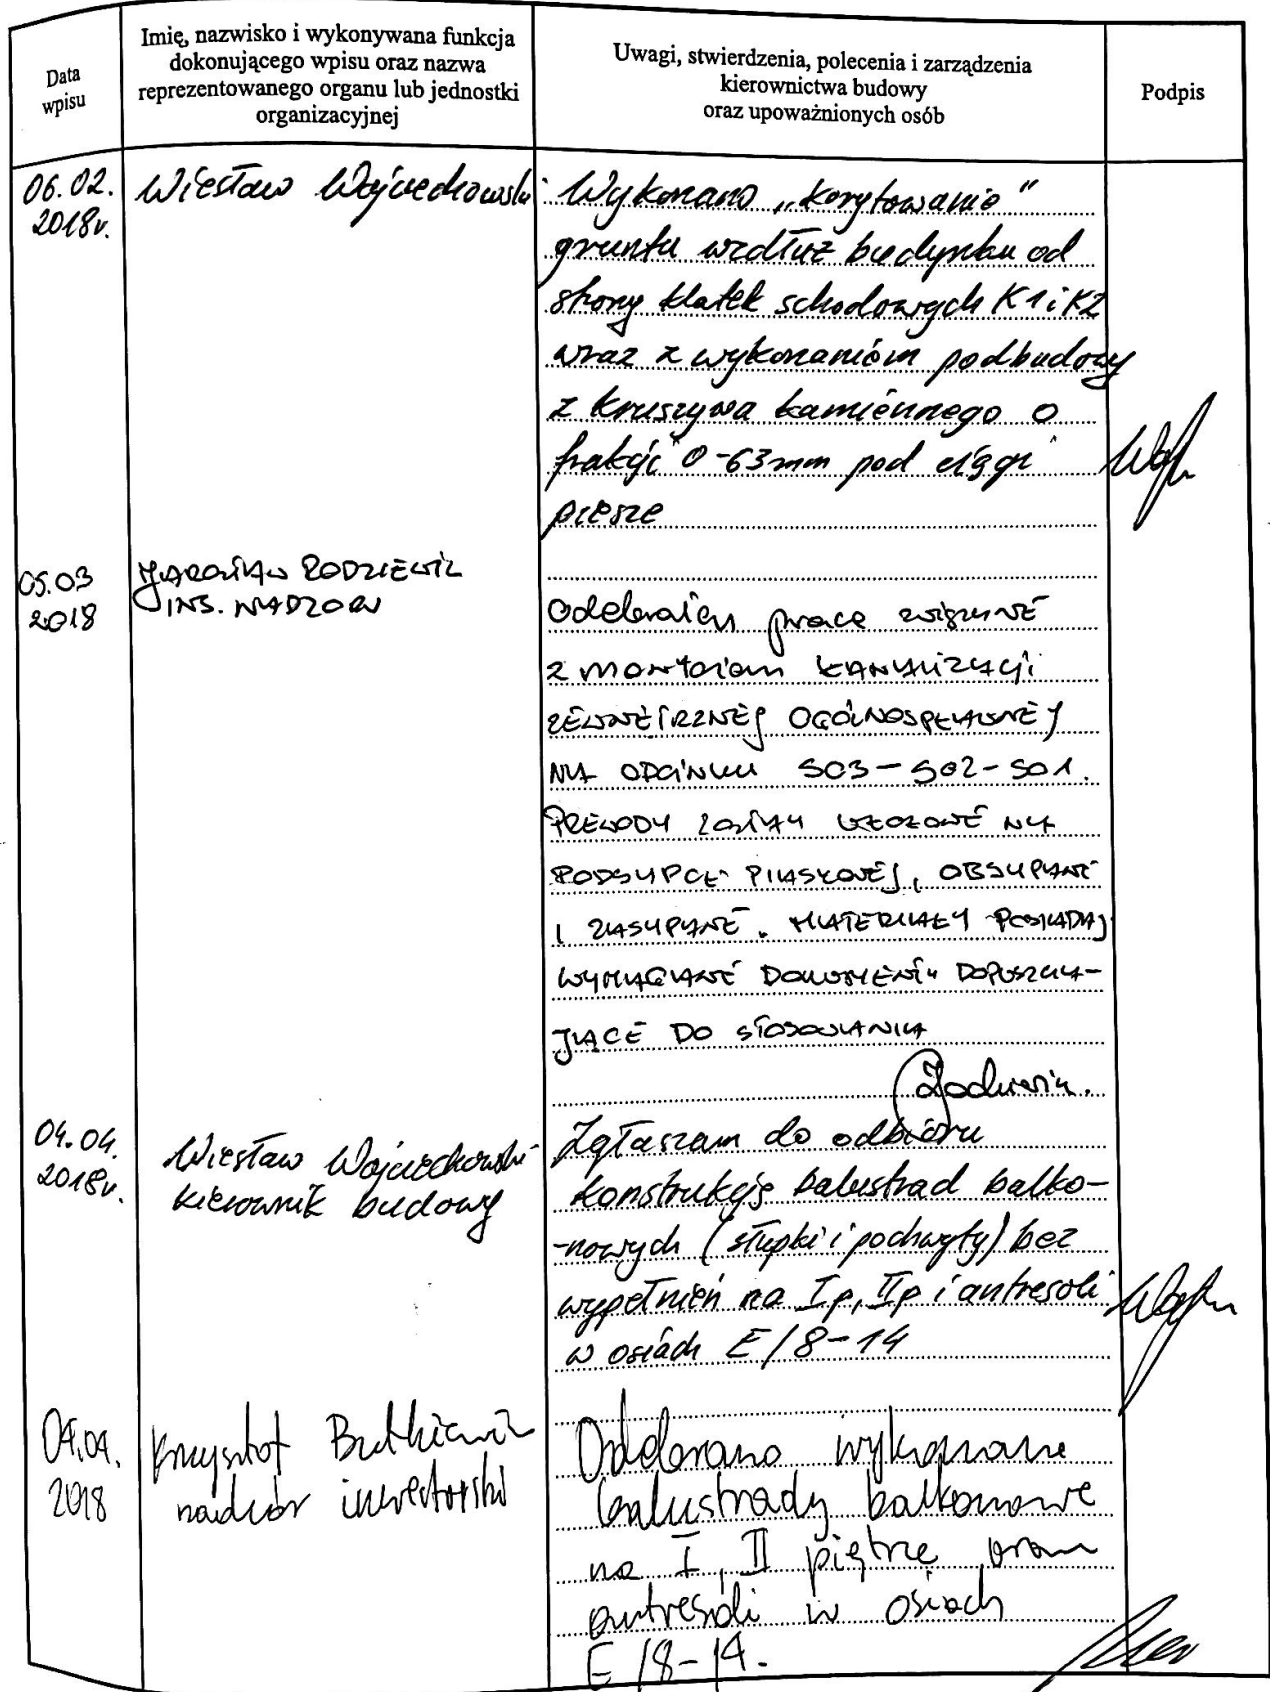 Data
wpisu
Imię, nazwisko i wykonywana funkcja
dokonującego wpisu oraz nazwa
reprezentowanego organu lub jednostki
organizacyjnej
Uwagi, stwierdzenia, polecenia i zarządzenia
kierownictwa budowy
oraz upoważnionych osób
Podpis
06.02.
2018r.
Wiesław Wojciechowski
Wykonano „korytowanie"
gruntu wzdłuż budynku od
strony klatek schodowych K1 i K2
wraz z wykonaniem podbudowy
z kruszywa kamiennego o
frakcji 0-63mm pod ciągi
piesze
05.03
2018
JAROSŁAW RODZIEWICZ
INS. NADZORU
Odebrałem prace związane
z montażem KANALIZACJI
ZEWNĘTRZNEJ OGÓLNOSPŁAWNEJ
NA ODCINKU SO3-SO2-SO1.
PRZEWODY ZOSTAŁY UŁOŻONE NA
PODSYPCE PIASKOWEJ, OBSYPANE
I ZASYPANE. MATERIAŁY POSIADAJĄ
WYMAGANE DOKUMENTY DOPUSZCZA-
JĄCE DO STOSOWANIA
04.04.
2018r.
Wiesław Wojciechowski
kierownik budowy
Zgłaszam do odbioru
konstrukcję balustrad balko-
-nowych (słupki i pochwyty) bez
wypełnień na Ip, IIp i antresoli
w osiach E/8-14
04.04.
2018
Krzysztof Butkiewicz
nadzór inwestorski
Odebrano wykonane
balustrady balkonowe
na I, II piętrze oraz
antresoli w osiach
E/8-14.